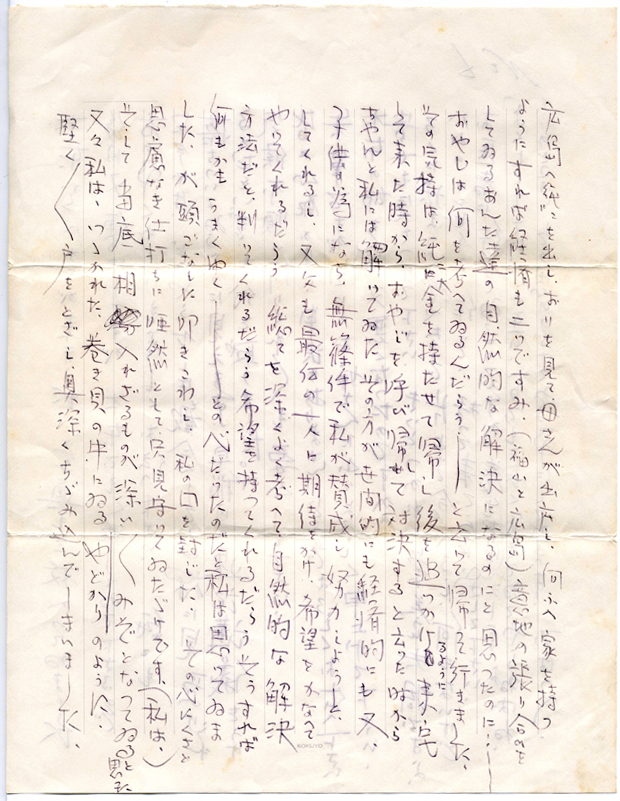 広島へ純ニを出し、おりを見て、母さんが出広し、向ふへ家を持つ
ようにすれば経済も二つですみ、(福山と広島)意地の張り合ひを
してゐるあんた達の自然的な解決になるのにと思つたのに……
おやじは何を考へてゐるんだらう――と云つて帰つて行きました、
その気持は、純ニに金を持たせて帰し後を追つかけるように来
して来た時から、おやじを呼び帰れて対決すると云つた時から
ちやんと私には解つてゐた、その方が世間的にも経済的にも又、
子供の為になら、無条件で私が賛成し努力しようし、
してくれるし、又父も最后の一人に期待をかけ、希望をかなへて
やつてくれるだらう 総てを深くふかく考へて、自然的な解決
方法だと、判つてくれるだらう希望を持つてくれるだらうそうすれば
何もかもうまくゆく――との心だつたのだと私は思つてゐま
した、が頭ごなしに叩きこわし、私の口を封じた、その心にくさと
思慮なき仕打ちに唖然として只見守つてゐただけです、(私は、)
そして当底相入れざるものが深い〱みぞとなつてゐると思つた
又々私は、つゝかれた、巻き貝の中にゐるやどかりのように、
堅く〱戸をとざし、奥深くちゞみ込んでしまいました、
KOKUYO